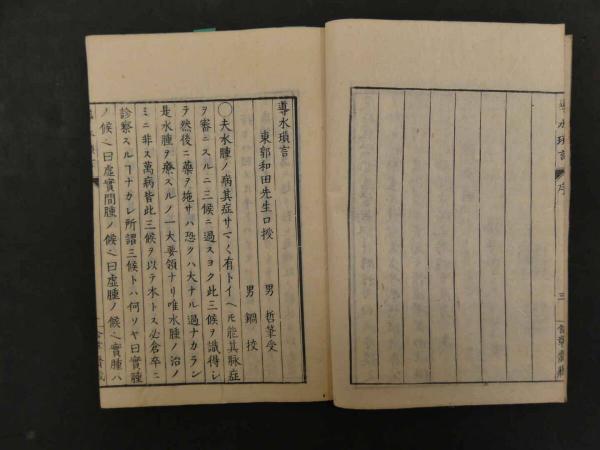 導水瑣言 序 三
導水瑣言
東郭和田先生口授 男 哲筆受
男 鋼 挍
〇夫水腫ノ病其症サマ〱有トイヘ𪜈能其脉症
ヲ審ニスルニ三候ニ過スヨク此三候ヲ識得シ
ヲ然後ニ藥ヲ施サハ恐クハ大ナル過ナカラン
是水腫ヲ療スルノ一大要領ナリ唯水腫ノ治ノ
ミニ非ス萬病皆此三候ヲ以テ本トス必倉卒ニ
診察スルヿナカレ所謂三候トハ何ソヤ曰實腫
ノ候曰虛實間腫ノ候曰虛腫ノ候實腫ハ